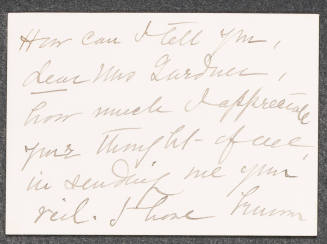 How can I tell you,
dear Mrs Gardner,
how much I appreciate
your thought - of me,
in sending me your
veil. I have known